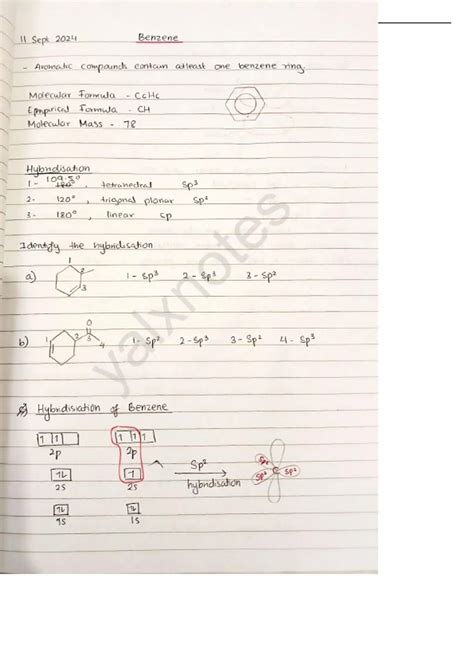 11 Sept 2024 Benzene
- Aromatic compounds contain atleast one benzene ring.
Molecular Formula - C6H6
Empirical Formula - CH
Molecular Mass - 78
Hybridisation
109.5°
1- 180°, tetrahedral Sp³
2- 120°, trigonal planar Sp²
3- 180°, linear Sp
Identify the hybridisation
1
2
3
a) 1-Sp³ 2-Sp³ 3-Sp²
O
1 2 3 4
b) 1-Sp² 2-Sp³ 3-Sp² 4-Sp³
Hybridisiation of Benzene
1 1 1 1 1
2p 2p
1L 1
2s 2s
Sp²
hybridisation
Sp² C Sp² Sp²
1L 1L
1s 1s
yalxnotes